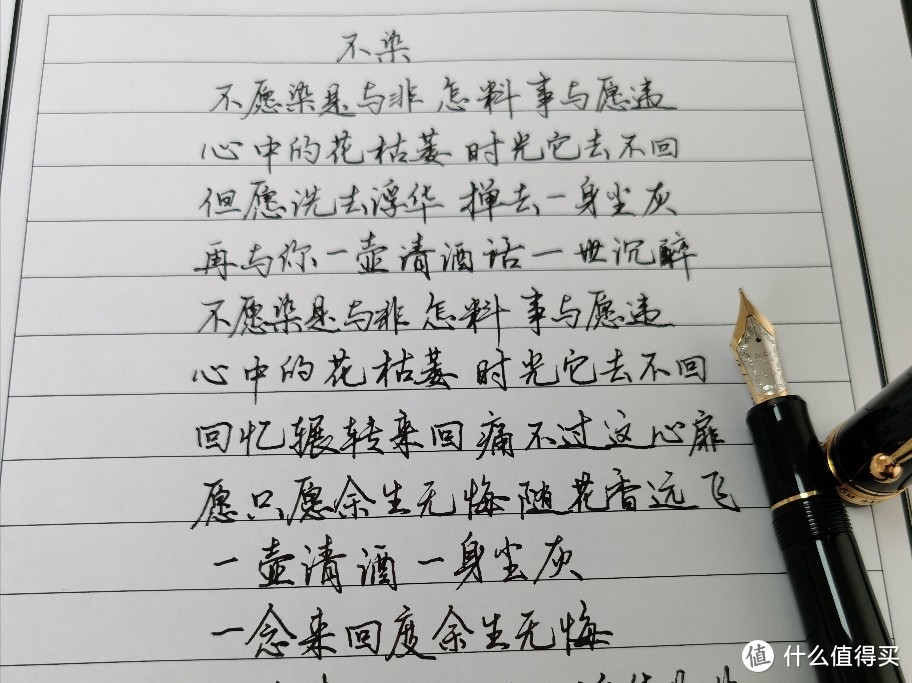 不染
不愿染是与非 怎料事与愿违
心中的花枯萎 时光它去不回
但愿洗去浮华 掸去一身尘灰
再与你一壶清酒话一世沉醉
不愿染是与非 怎料事与愿违
心中的花枯萎 时光它去不回
回忆辗转来回痛不过这心扉
愿只愿余生无悔随花香远飞
一壶清酒一身尘灰
一念来回度余生无悔
值 什么值得买